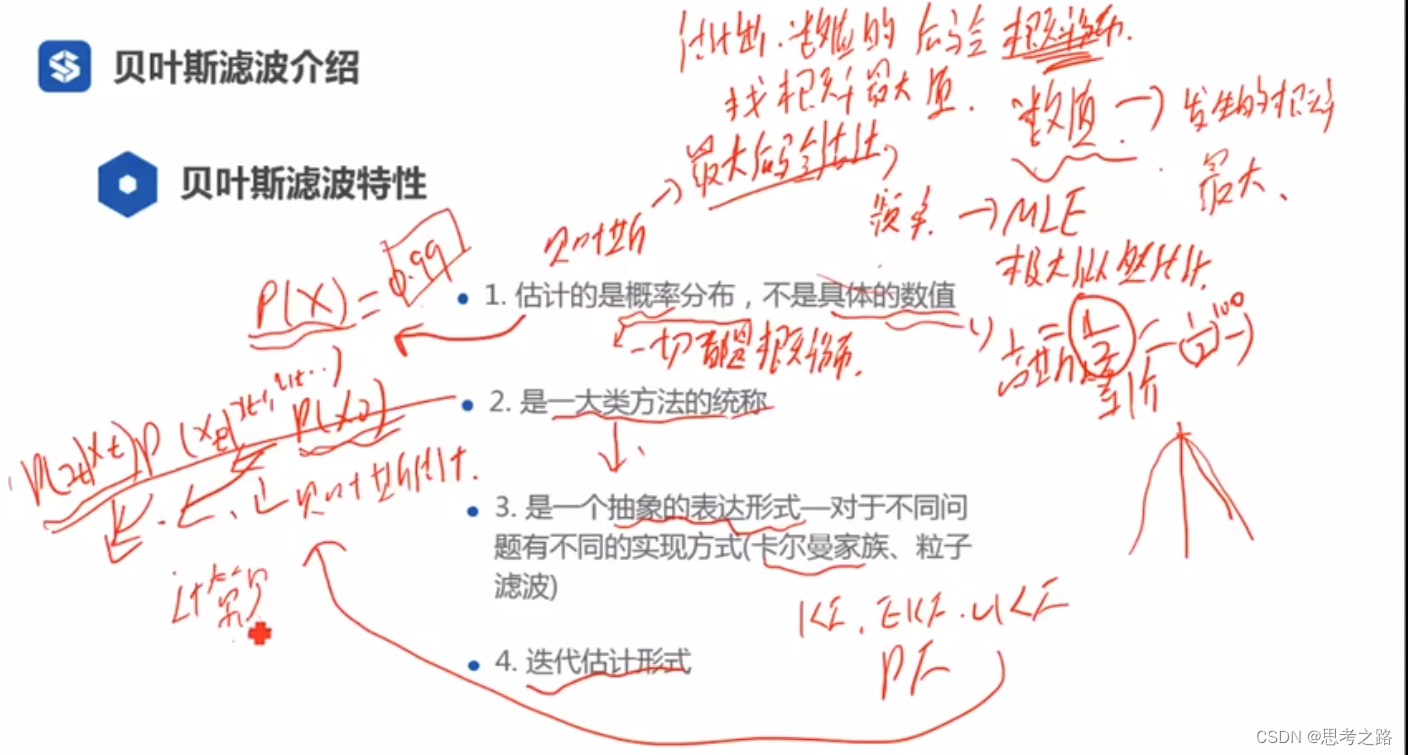 估计出.数值的后验概率分布.
贝叶斯滤波介绍
找概率最大值.
数值 → 发生的概率
最大后验估计
最大、
贝叶斯滤波特性
频率 → MLE
贝叶斯
极大似然估计.
P(X) = 0.99
1. 估计的是概率分布，不是具体的数值
一切都是概率分布.
2. 是一大类方法的统称
P(X0)
贝叶斯估计.
3. 是一个抽象的表达形式—对于不同问
题有不同的实现方式(卡尔曼家族、粒子
滤波)
计算
KF. EKF. UKF
PF
4. 迭代估计形式
CSDN @思考之路